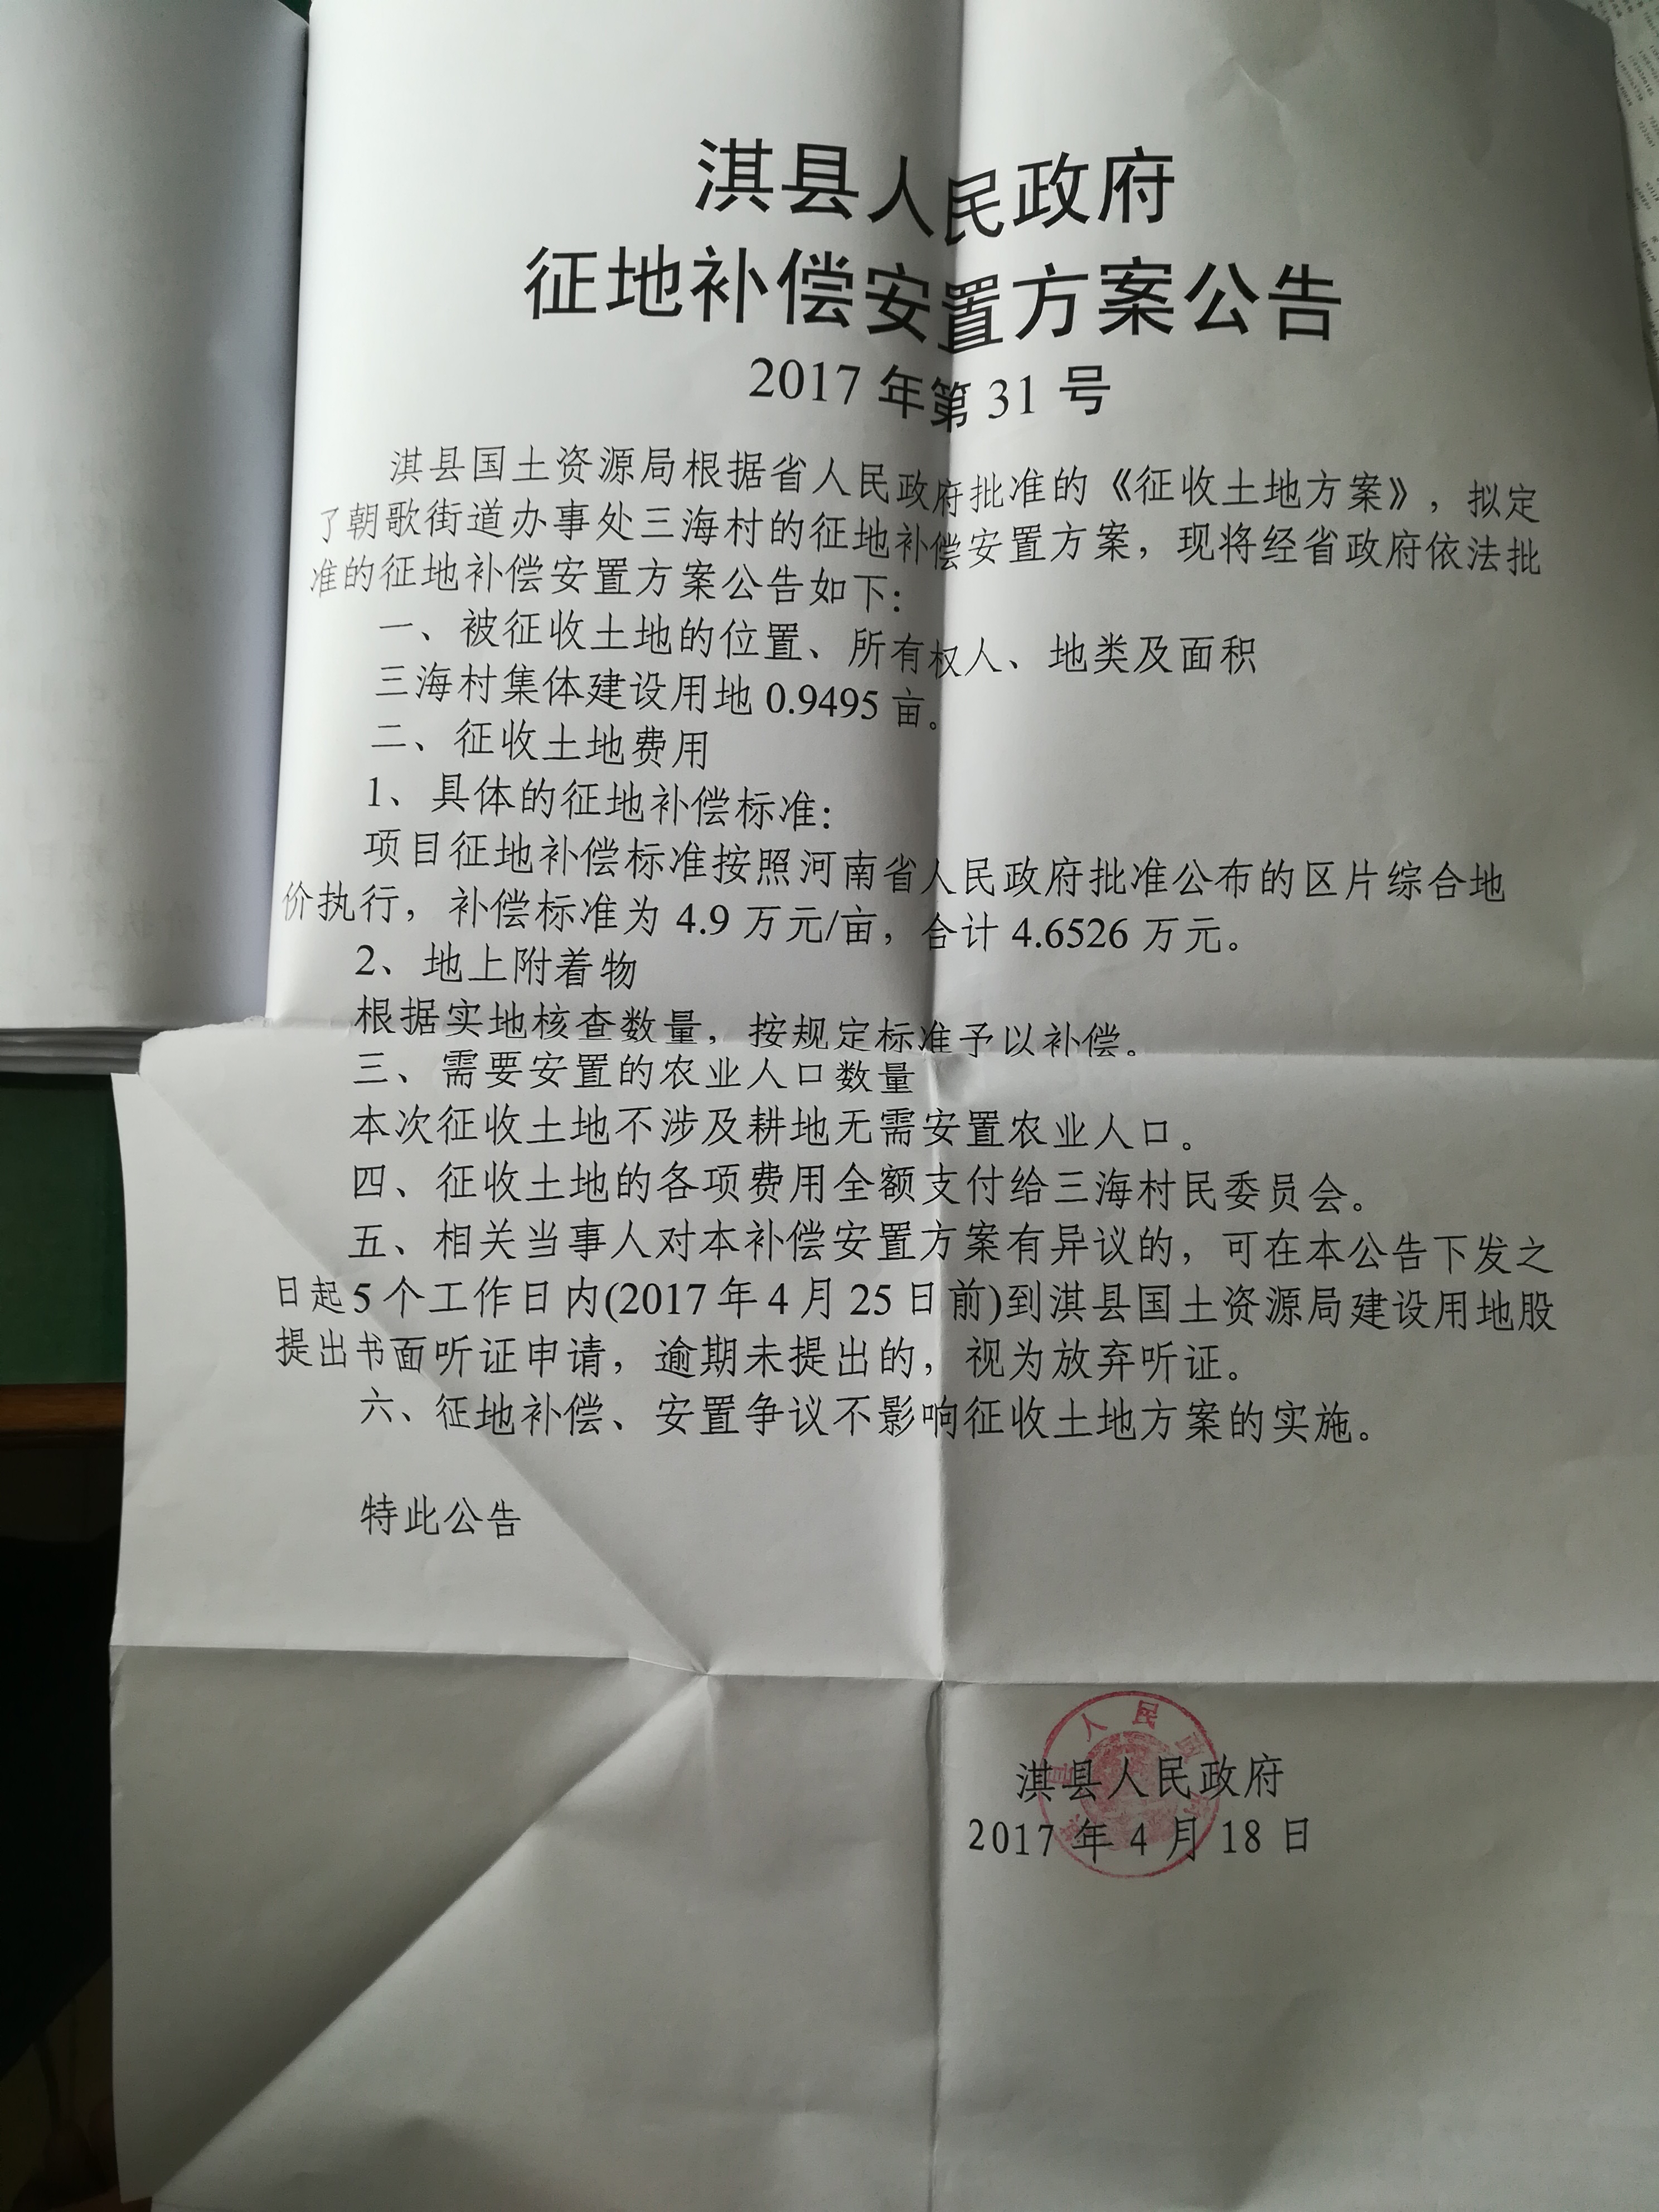 淇县人民政府
征地补偿安置方案公告
2017年第31号
淇县国土资源局根据省人民政府批准的《征收土地方案》，拟定
了朝歌街道办事处三海村的征地补偿安置方案，现将经省政府依法批
准的征地补偿安置方案公告如下：
一、被征收土地的位置、所有权人、地类及面积
三海村集体建设用地0.9495亩。
二、征收土地费用
1、具体的征地补偿标准：
项目征地补偿标准按照河南省人民政府批准公布的区片综合地
价执行，补偿标准为4.9万元/亩，合计4.6526万元。
2、地上附着物
根据实地核查数量，按规定标准予以补偿。
三、需要安置的农业人口数量
本次征收土地不涉及耕地无需安置农业人口。
四、征收土地的各项费用全额支付给三海村民委员会。
五、相关当事人对本补偿安置方案有异议的，可在本公告下发之
日起5个工作日内(2017年4月25日前)到淇县国土资源局建设用地股
提出书面听证申请，逾期未提出的，视为放弃听证。
六、征地补偿、安置争议不影响征收土地方案的实施。
特此公告
淇县人民政府
2017年4月18日